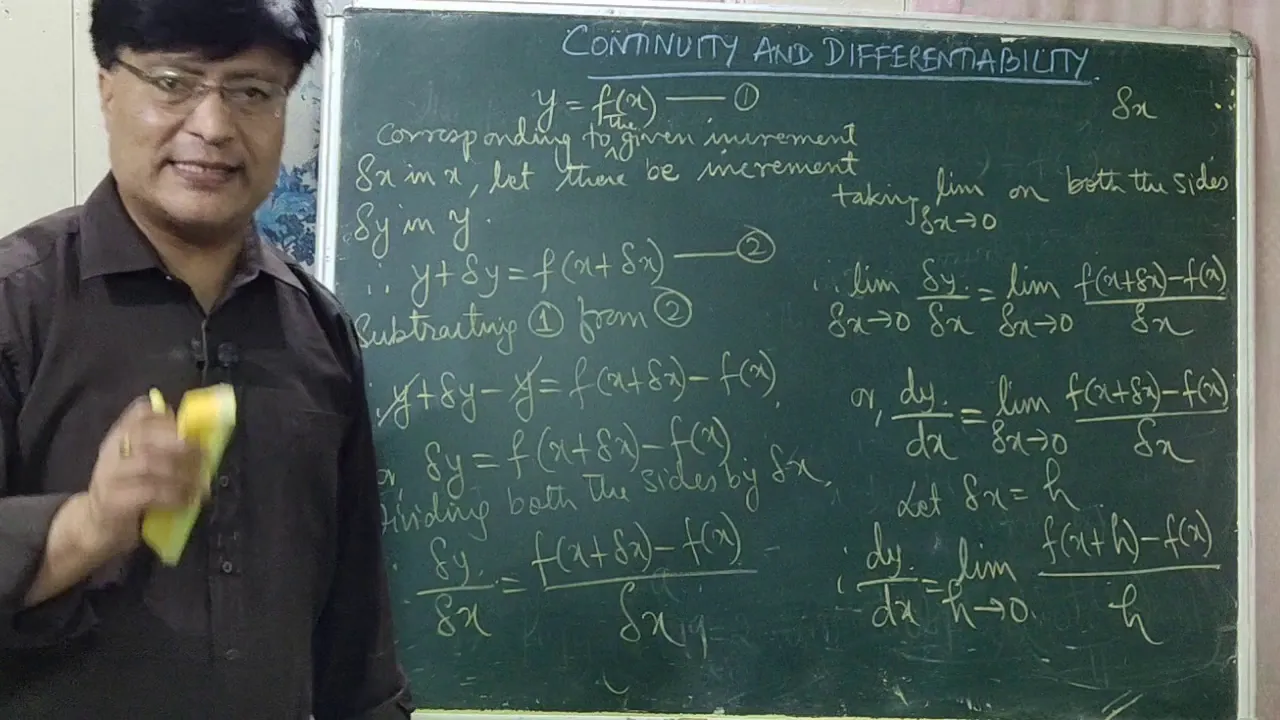 CONTINUITY AND DIFFERENTIABILITY
y = f(x) —— ①
corresponding to the given increment
δx in x, let there be increment
δy in y.
∴ y + δy = f(x + δx) —— ②
Subtracting ① from ②
∴ y + δy - y = f(x + δx) - f(x),
or, δy = f(x + δx) - f(x)
Dividing both the sides by δx,
∴ δy/δx = (f(x + δx) - f(x))/δx
δx
taking lim δx→0 on both the sides
∴ lim δx→0 δy/δx = lim δx→0 (f(x+δx) - f(x))/δx
or, dy/dx = lim δx→0 (f(x+δx) - f(x))/δx
Let δx = h
∴ dy/dx = lim h→0 (f(x+h) - f(x))/h